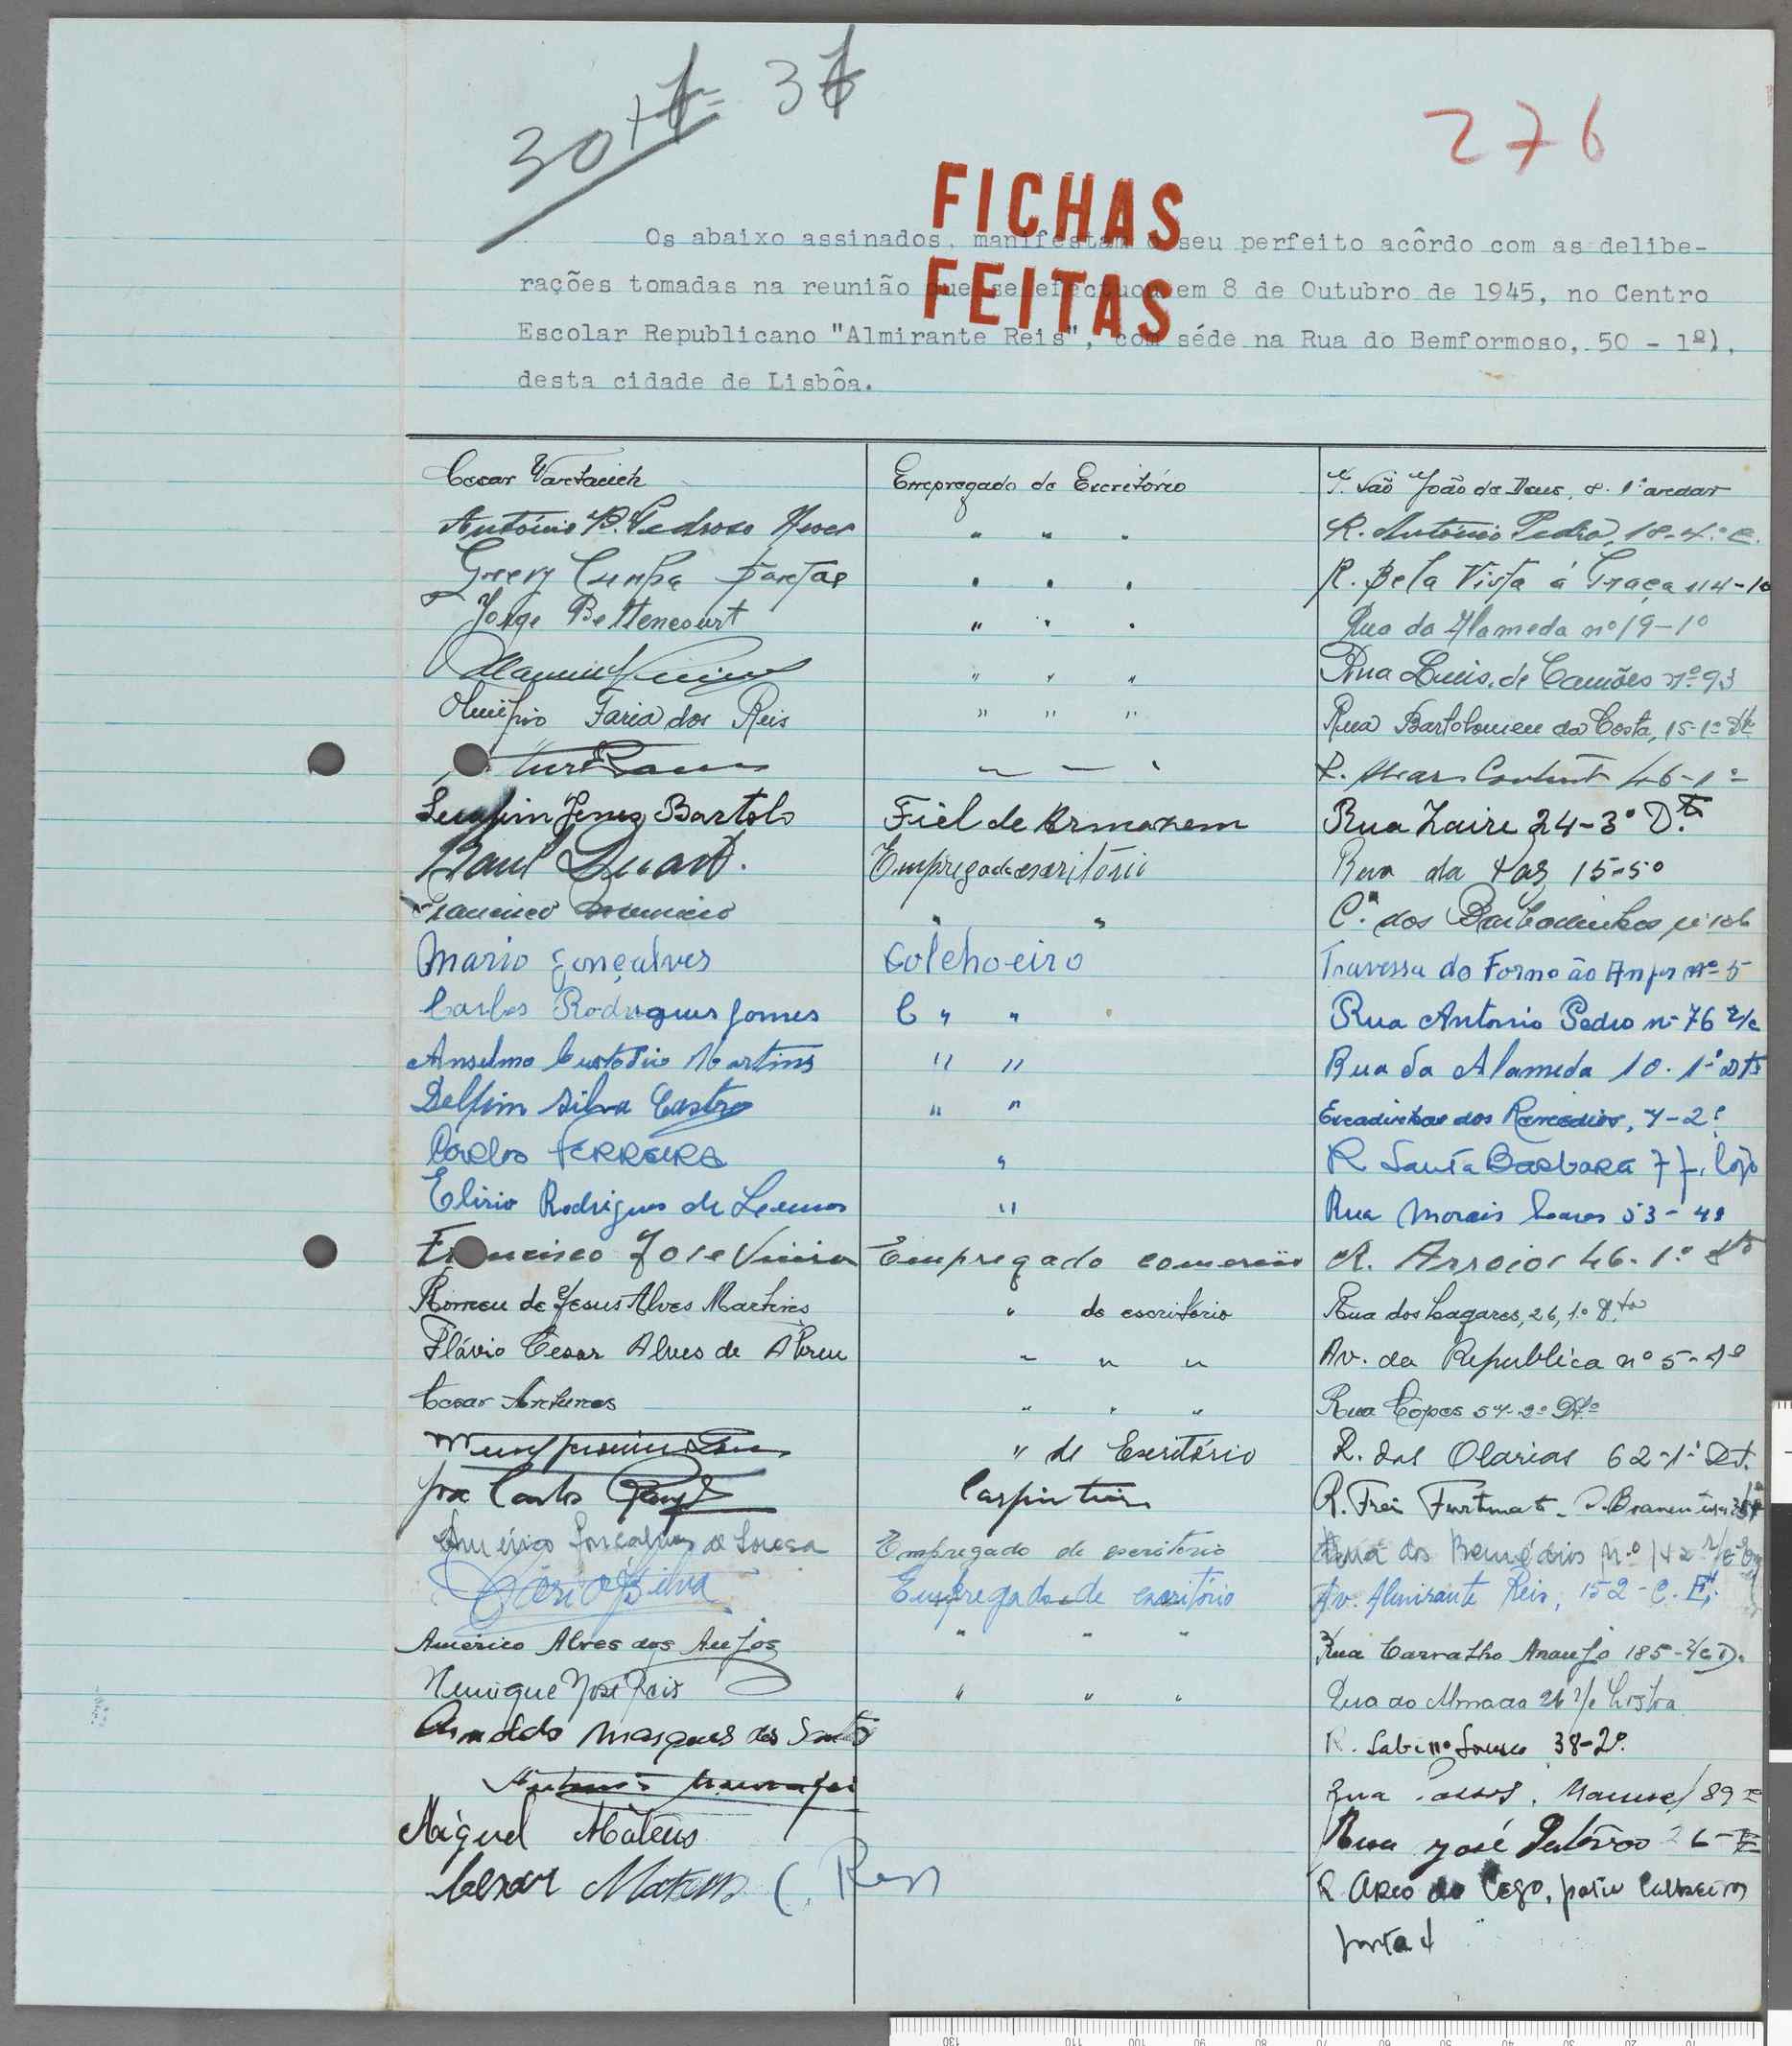 30+7= 37
276
FICHAS
FEITAS
Os abaixo assinados, manifestam o seu perfeito acôrdo com as delibe-
rações tomadas na reunião que se efectuou em 8 de Outubro de 1945, no Centro
Escolar Republicano "Almirante Reis", com séde na Rua do Bemformoso, 50 - 1º),
desta cidade de Lisbôa.
Cesar Empregado de Escritório T. São João de Deus, 8. 1º andar
António Pedroso " " " R. António Pedro, 18-4º E.
Cunha " " " R. Bela Vista á Graça 114-1º
Jorge Bettencourt " " " Rua da Alameda nº 19-1º
Manuel " " " Rua Luis de Camões nº 93
Olimpio Faria dos Reis " " " Rua Bartolomeu da Costa, 15-1º Dtº
46-1º
Serafim Bartolo Fiel de Armazem Rua Zaire 24-3º Dtº
Raul Duarte. Empregado escritório Rua da Paz 15-5º
Francisco " " C.ª dos Barbadinhos nº 106
Mario Gonçalves Colchoeiro Travessa do Forno ão Anjos nº 5
Carlos Rodrigues Gomes C " " Rua Antonio Pedro nº 76 r/c
Anselmo Custodio Martins " " Rua da Alameda 10. 1º Dtº
Delfim Silva Castro " " Escadinhas dos Remedios, 7-2º
Carlos FERREIRA " R Santa Barbara 77, loja
Elirio Rodrigues de Lemos " Rua Morais Soares 53-4º
Francisco Jose Vieira Empregado comercio R. Arroios 46-1º Dtº
Romeu de Jesus Alves Martins " de escritório Rua dos Lagares, 26, 1º D.to
Flávio Cesar Alves de Abreu " " " Av. da Republica nº 5-4º
Cesar Antunes " " " Rua Lopes 57-2º Dtº
" de Escritório R. das Olarias 62-1º Dt.
José Carlos Carpinteiro R. Frei
Américo Gonçalves de Sousa Empregado de escritorio Rua dos Remédios n.º 142 r/c
Silva Empregado de escritório Av. Almirante Reis, 152-C. E.
Américo Alves dos Anjos " " " Rua Carvalho Araujo 185-r/c D.
Henrique José Reis " " " Rua do Almada 26 r/c Lisboa
Arnaldo Marques dos Santos R. Sabino Sousa 38-2º
António Rua Passos Manuel 89
Miguel Mateus Rua José 26-
Cesar Mateus R Arco do Cego, patio
porta 4